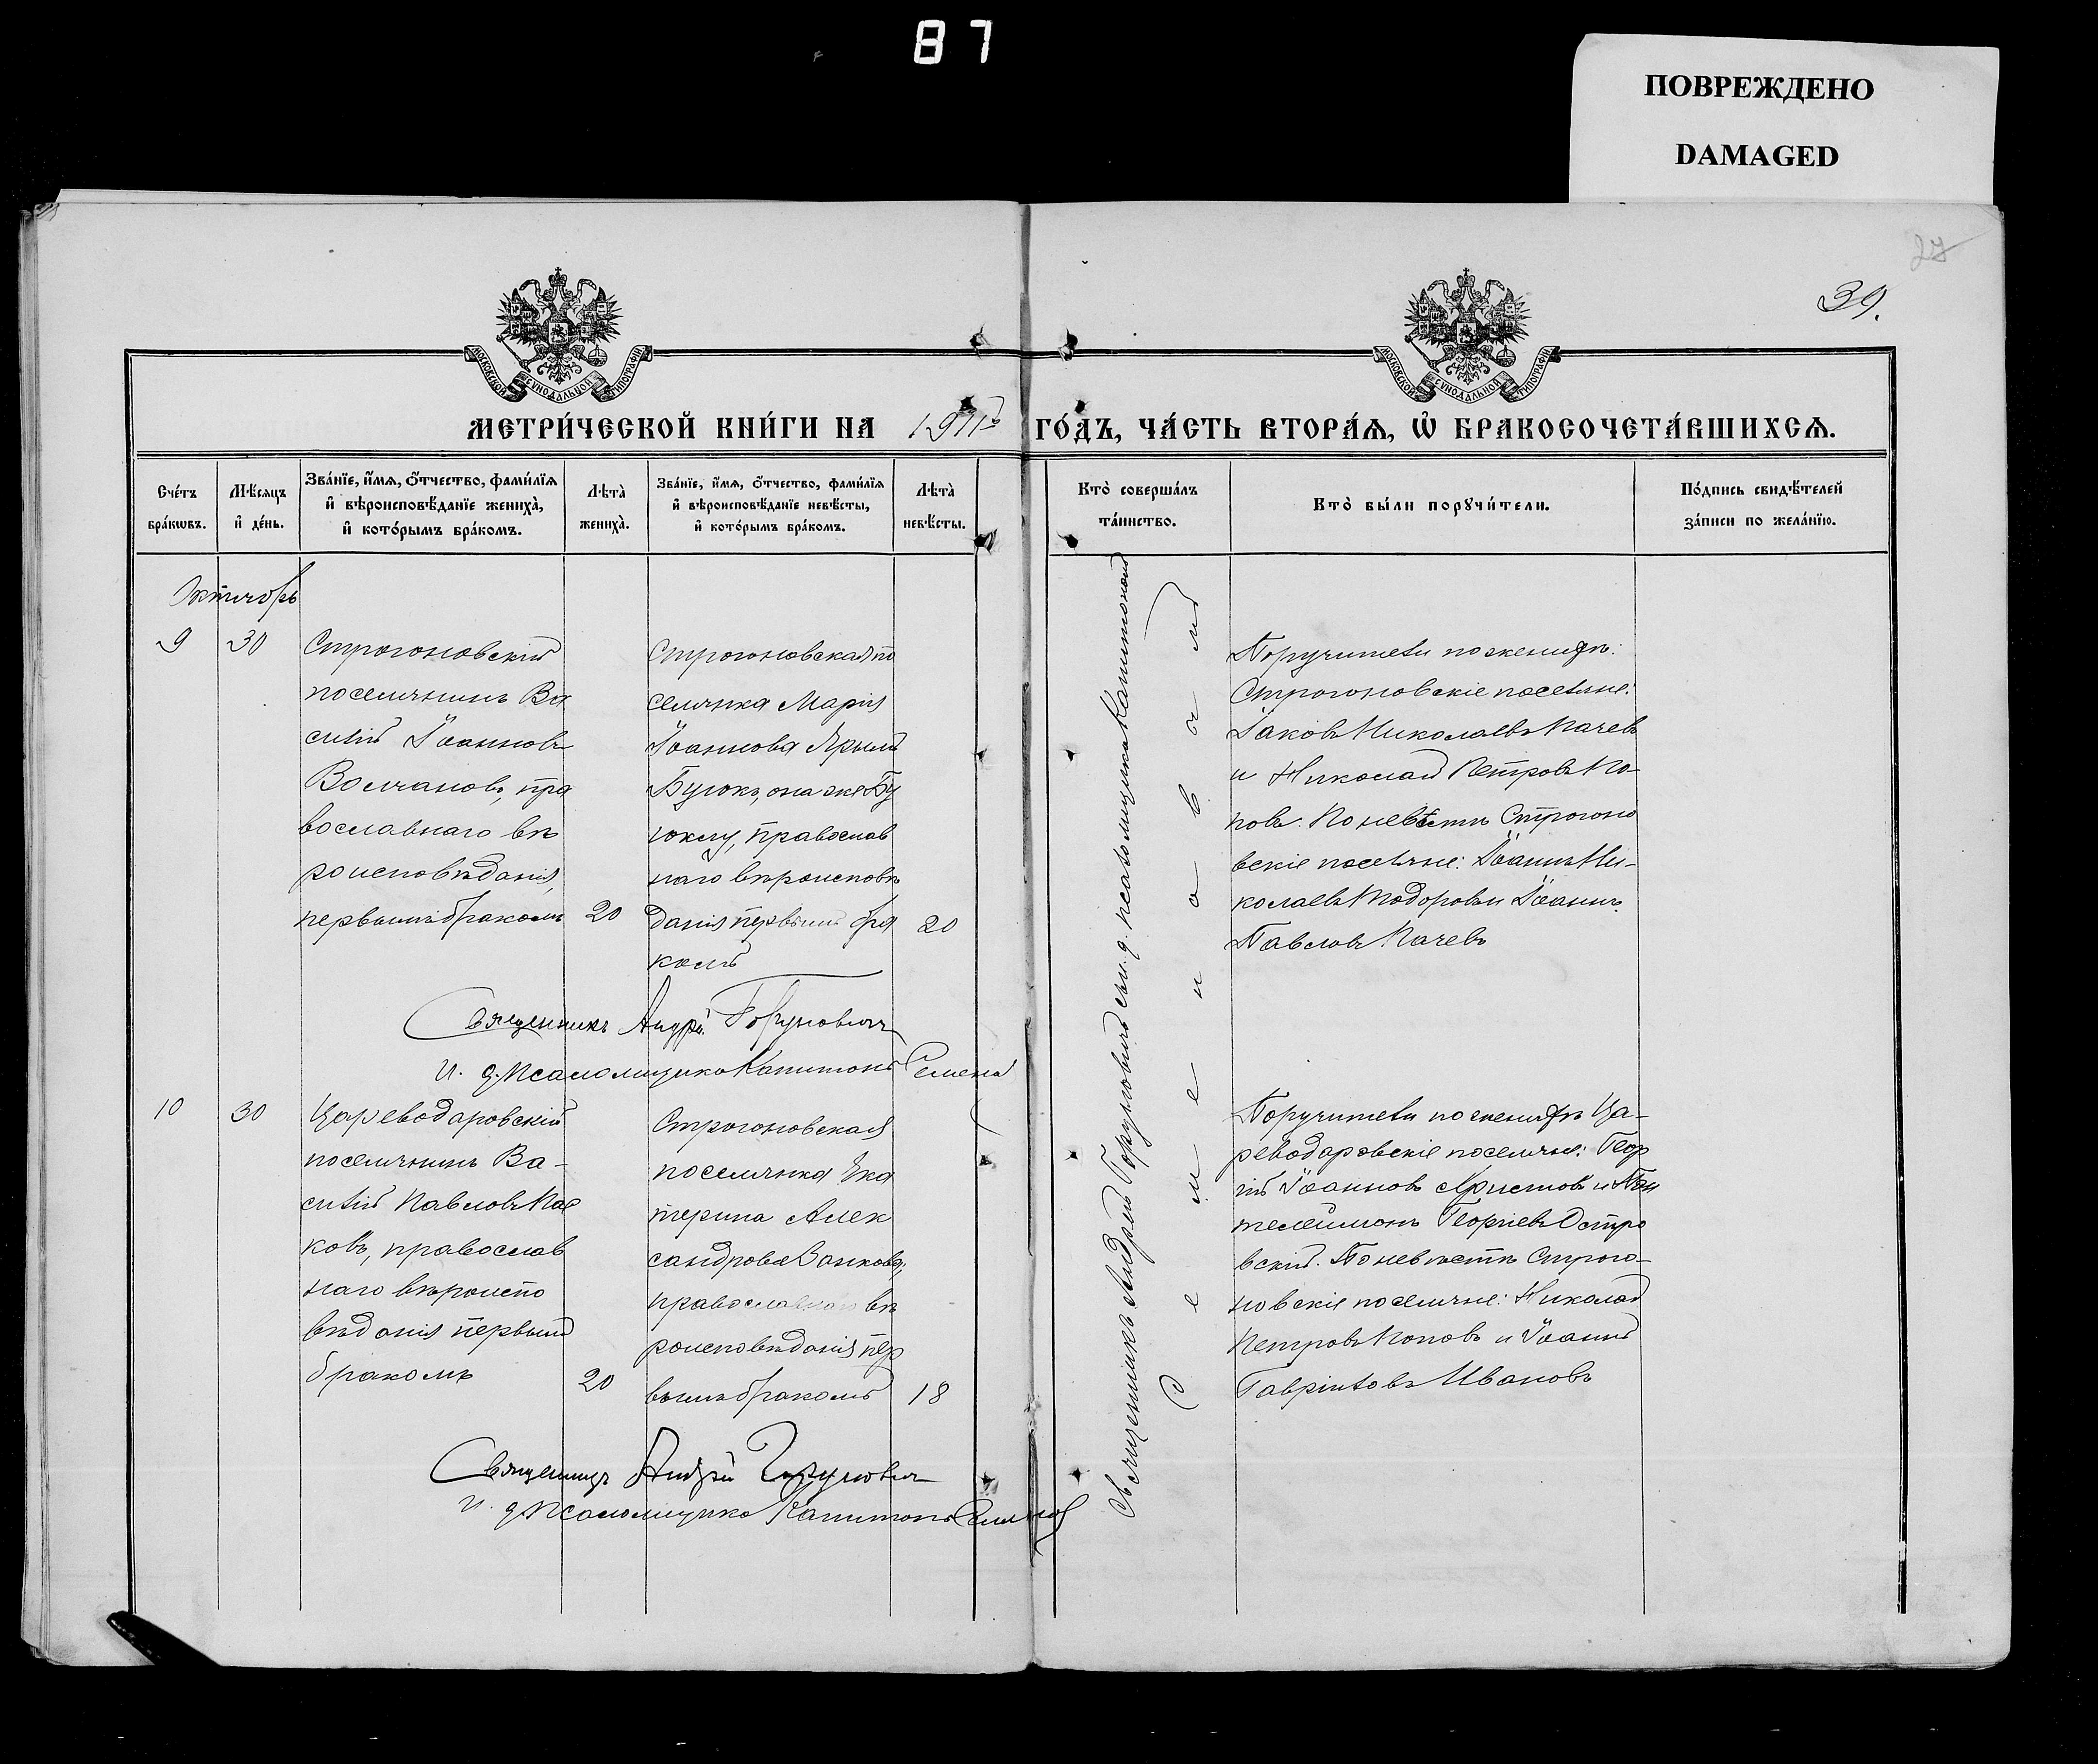 87
ПОВРЕЖДЕНО
DAMAGED
27
39.
МОСКОВСКОЙ СѴНОДАЛЬНОЙ ТИПОГРАФІИ
МОСКОВСКОЙ СѴНОДАЛЬНОЙ ТИПОГРАФІИ
МЕТРИ́ЧЕСКОЙ КНИ́ГИ НА 1911 ГО́ДЪ, ЧА́СТЬ ВТОРА́Ѧ, Ѡ҆ БРАКОСОЧЕТА́ВШИХСѦ.
Сче́тъ
бра́кѡвъ.
Мѣ́сяцъ
и҆ де́нь.
Зва́нїе, и҆́мѧ, ѻ҆́тчество, фами́лїѧ
и҆ вѣроисповѣ́данїе жениха̀,
и҆ кото́рымъ бра́комъ.
Лѣта̀
жениха̀.
Зва́нїе, и҆́мѧ, ѻ҆́тчество, фами́лїѧ
и҆ вѣроисповѣ́данїе невѣ́сты,
и҆ кото́рымъ бра́комъ.
Лѣта̀
невѣ́сты.
Кто̀ соверша́лъ
та́инство.
Кто̀ бы́ли порꙋчи́тели.
По́дпись свидѣ́телей
за́писи по жела́нїю.
Октябрь
9
30
Строгоновскій
поселянинъ Ва
силій Іоанновъ
Волчановъ, пра
вославнаго вѣ
роисповѣданія,
первымъ бракомъ
20
Строгоновская по
селянка Марія
Іоаннова Ярым
Буюкъ, она же Бу
юклу, православ
наго вѣроисповѣ
данія первымъ бра
комъ
20
Священникъ Андрей Горуновичъ
и. д. псаломщика Капитонъ Семеновъ
Поручители по женихѣ:
Строгоновскіе поселяне:
Іаковъ Николаевъ Качевъ
и Николай Петровъ По-
повъ. По невѣстѣ Строгоно
вскіе поселяне: Іоаннъ Ни-
колаевъ Тодоровъ и Іоаннъ
Павловъ Качевъ
Священникъ Андрей Горуновичъ съ и. д. псаломщика Капитономъ
Семеновымъ
10
30
Цареводаровскій
поселянинъ Ва-
силій Павловъ
ковъ, православ
наго вѣроиспо
вѣданія первымъ
бракомъ
20
Строгоновская
поселянка Ека
терина Алек
сандрова Занкова,
православнаго вѣ
роисповѣданія пер
вымъ бракомъ
18
Священникъ Андрей Горуновичъ
и. д. псаломщика Капитонъ Семеновъ
Поручители по женихѣ Ца-
реводаровскіе поселяне: Геор
гій Іоанновъ Христовъ и Пан
телеймонъ Георгіевъ Остро
вскій. По невѣстѣ Строго-
новскіе поселяне: Николай
Петровъ Поповъ и Іоаннъ
Гавріиловъ Ивановъ